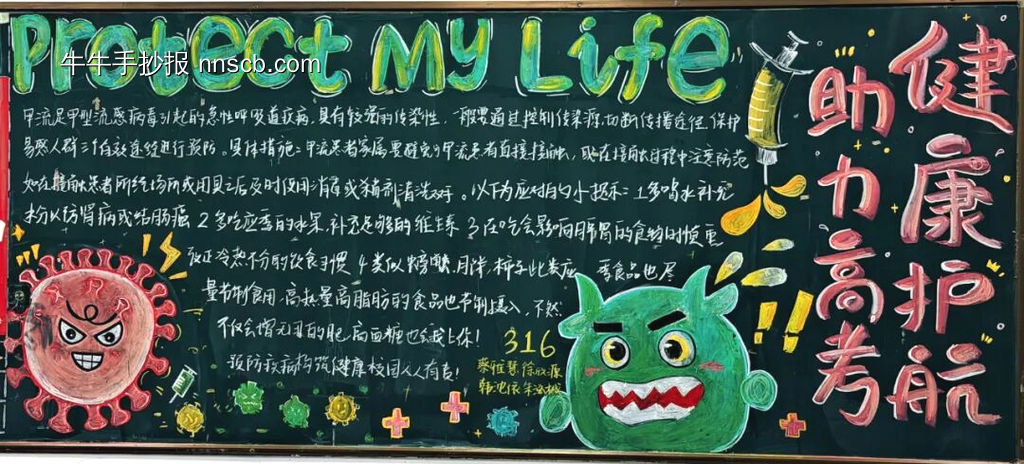 Protect My Life
牛牛手抄报 nnscb.com
健康护航
助力高考
甲流是甲型流感病毒引起的急性呼吸道疾病,具有较强的传染性,一般要通过控制传染源,切断传播途径,保护
易感人群三个有效途径进行预防。具体措施:甲流患者家属要避免与甲流患者直接接触,或在接触过程中注意防范
如在接触患者所经场所或用具之后及时使用消毒或 清洗双手。以下为应对的小提示:1多喝水补充
水 以防肾病或结肠癌 2 多吃应季的水果,补充足够的维生素 3 在吃会影响肠胃的食物时慎重
改正冷热不分的饮食习惯 4 类似螃蟹、 柿子此类应 食品也尽
量节制食用 高热量高脂肪的食品也节制摄入,不然
不仅会增无用的肥,高血糖也会找上你!
预防疾病构筑健康校园人人有责!
316